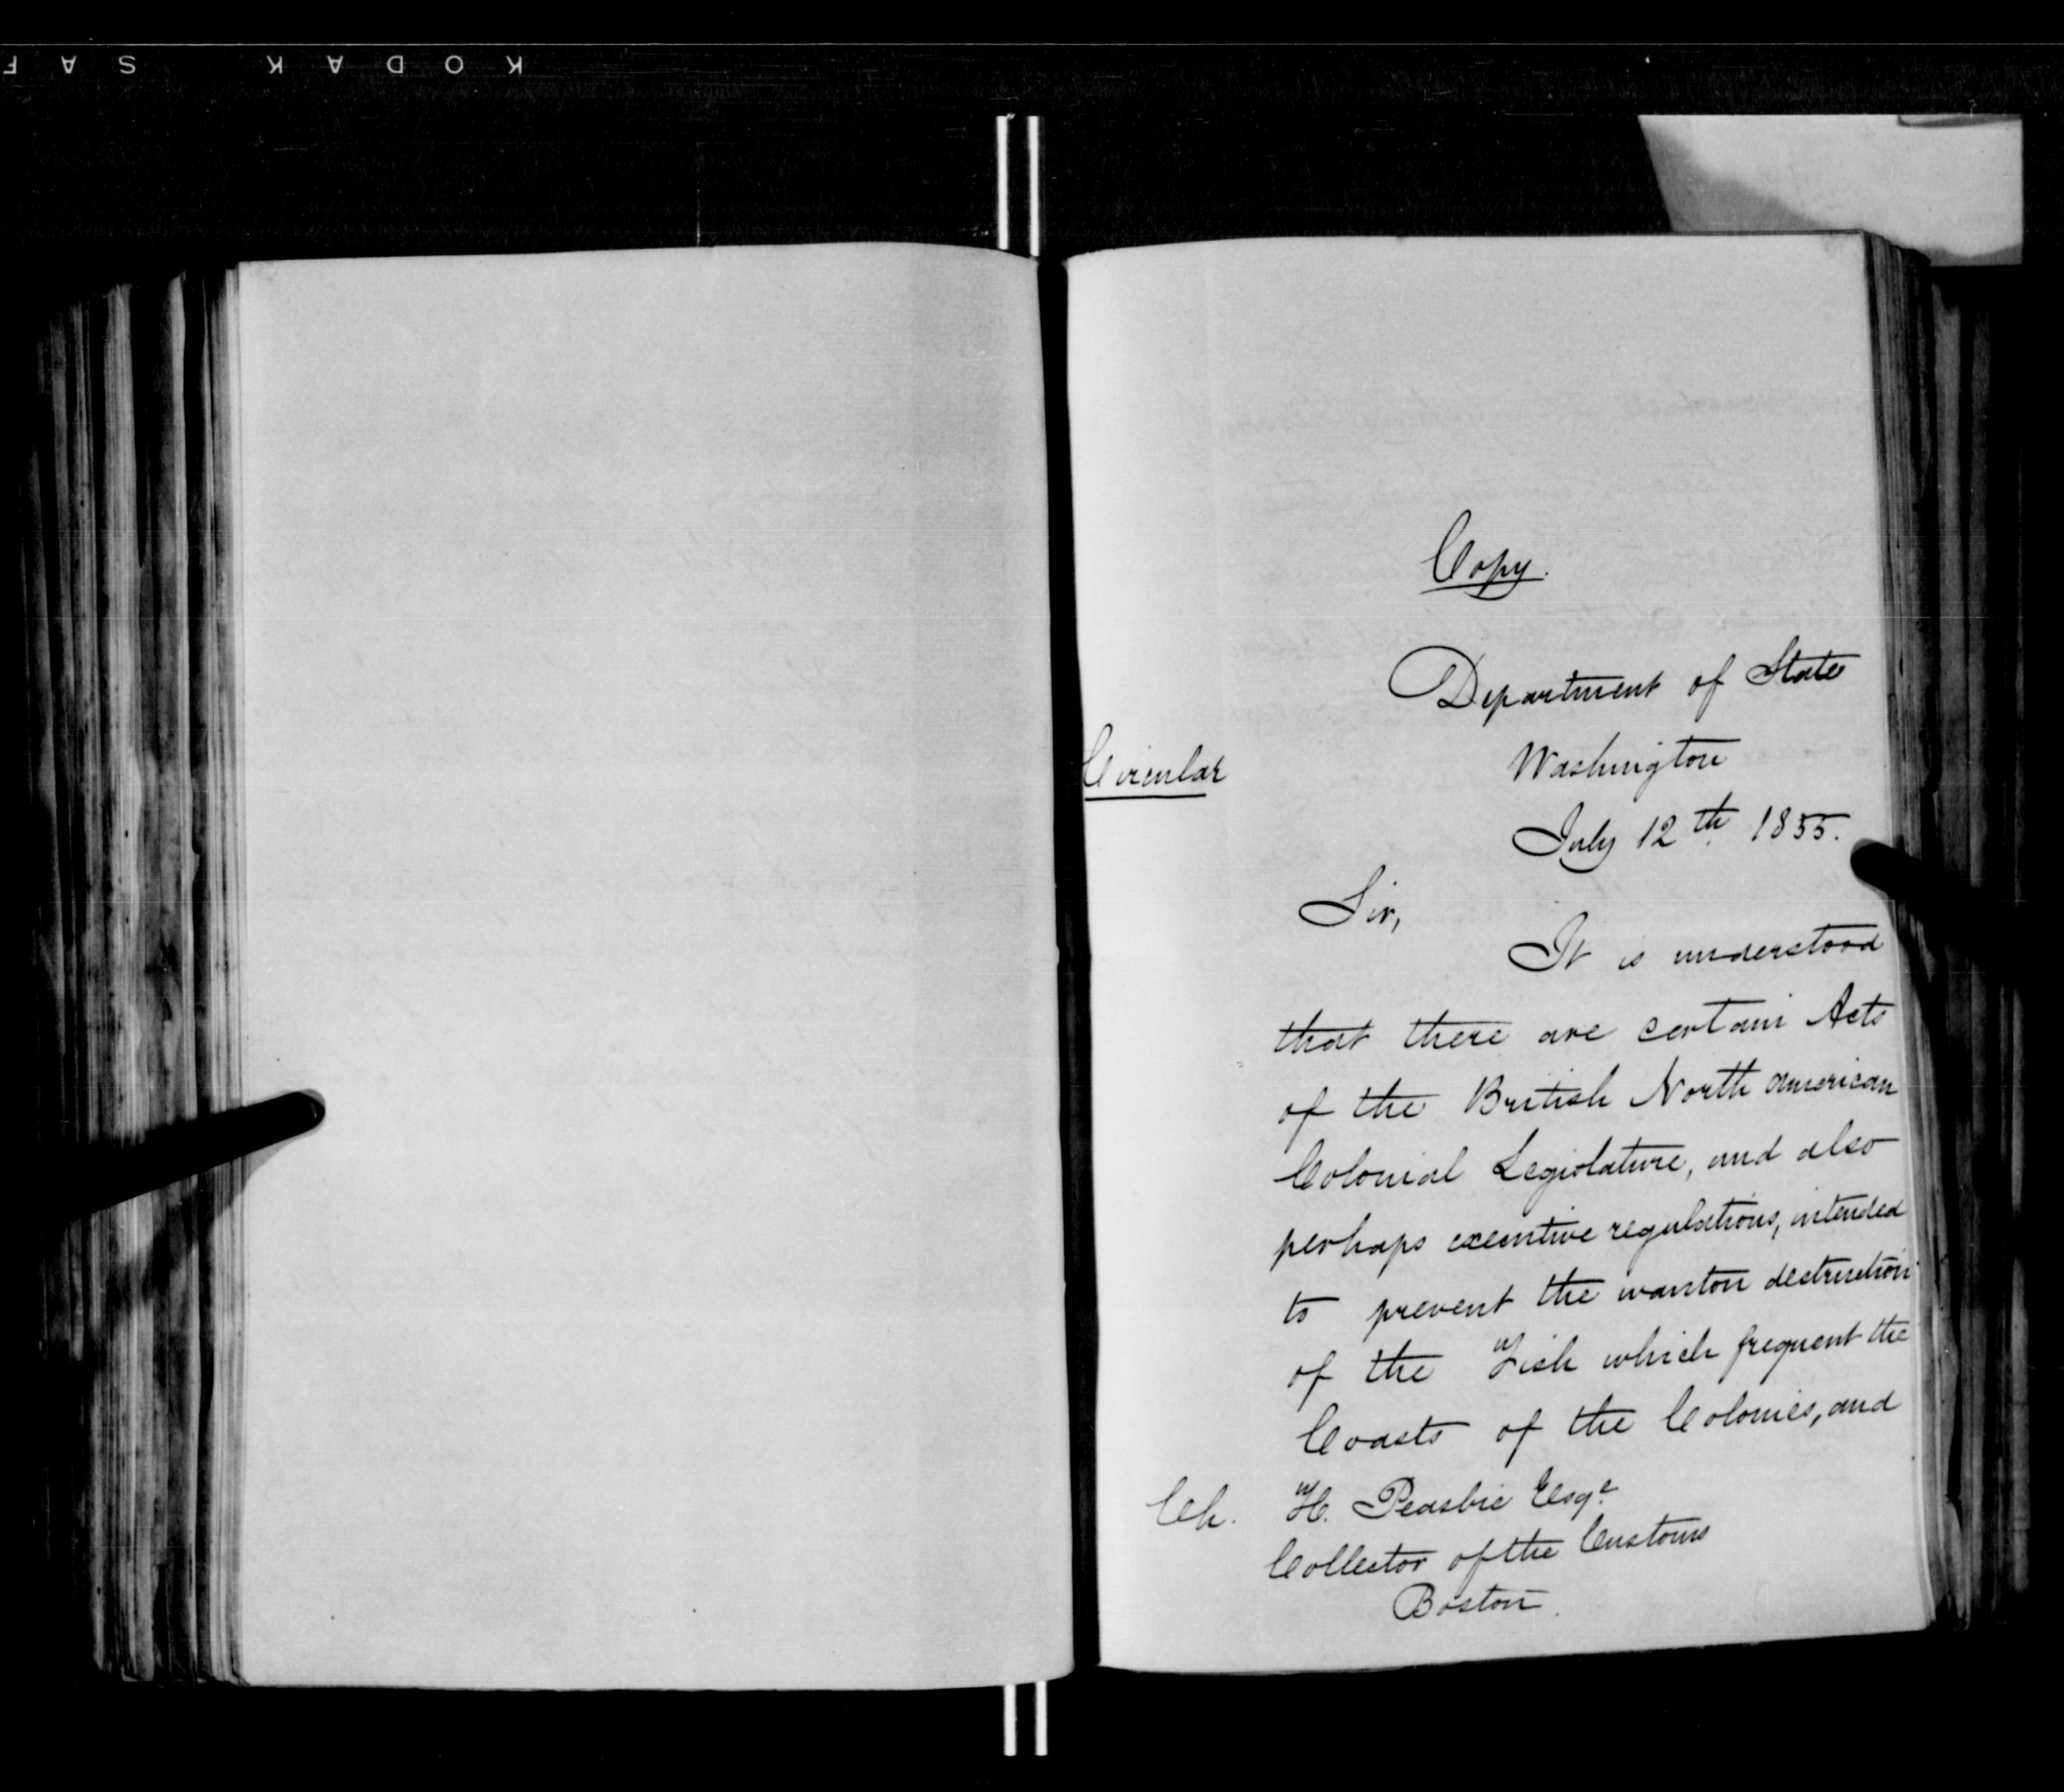 KODAK SAF
Copy.
Department of State
Circular
Washington
July 12th 1855.
Sir,
It is understood
that there are certain Acts
of the British North American
Colonial Legislature, and also
perhaps executive regulations, intended
to prevent the wanton destruction
of the Fish which frequent the
Coasts of the Colonies, and
Ch. H. Peaslie Esqe.
Collector of the Customs
Boston.